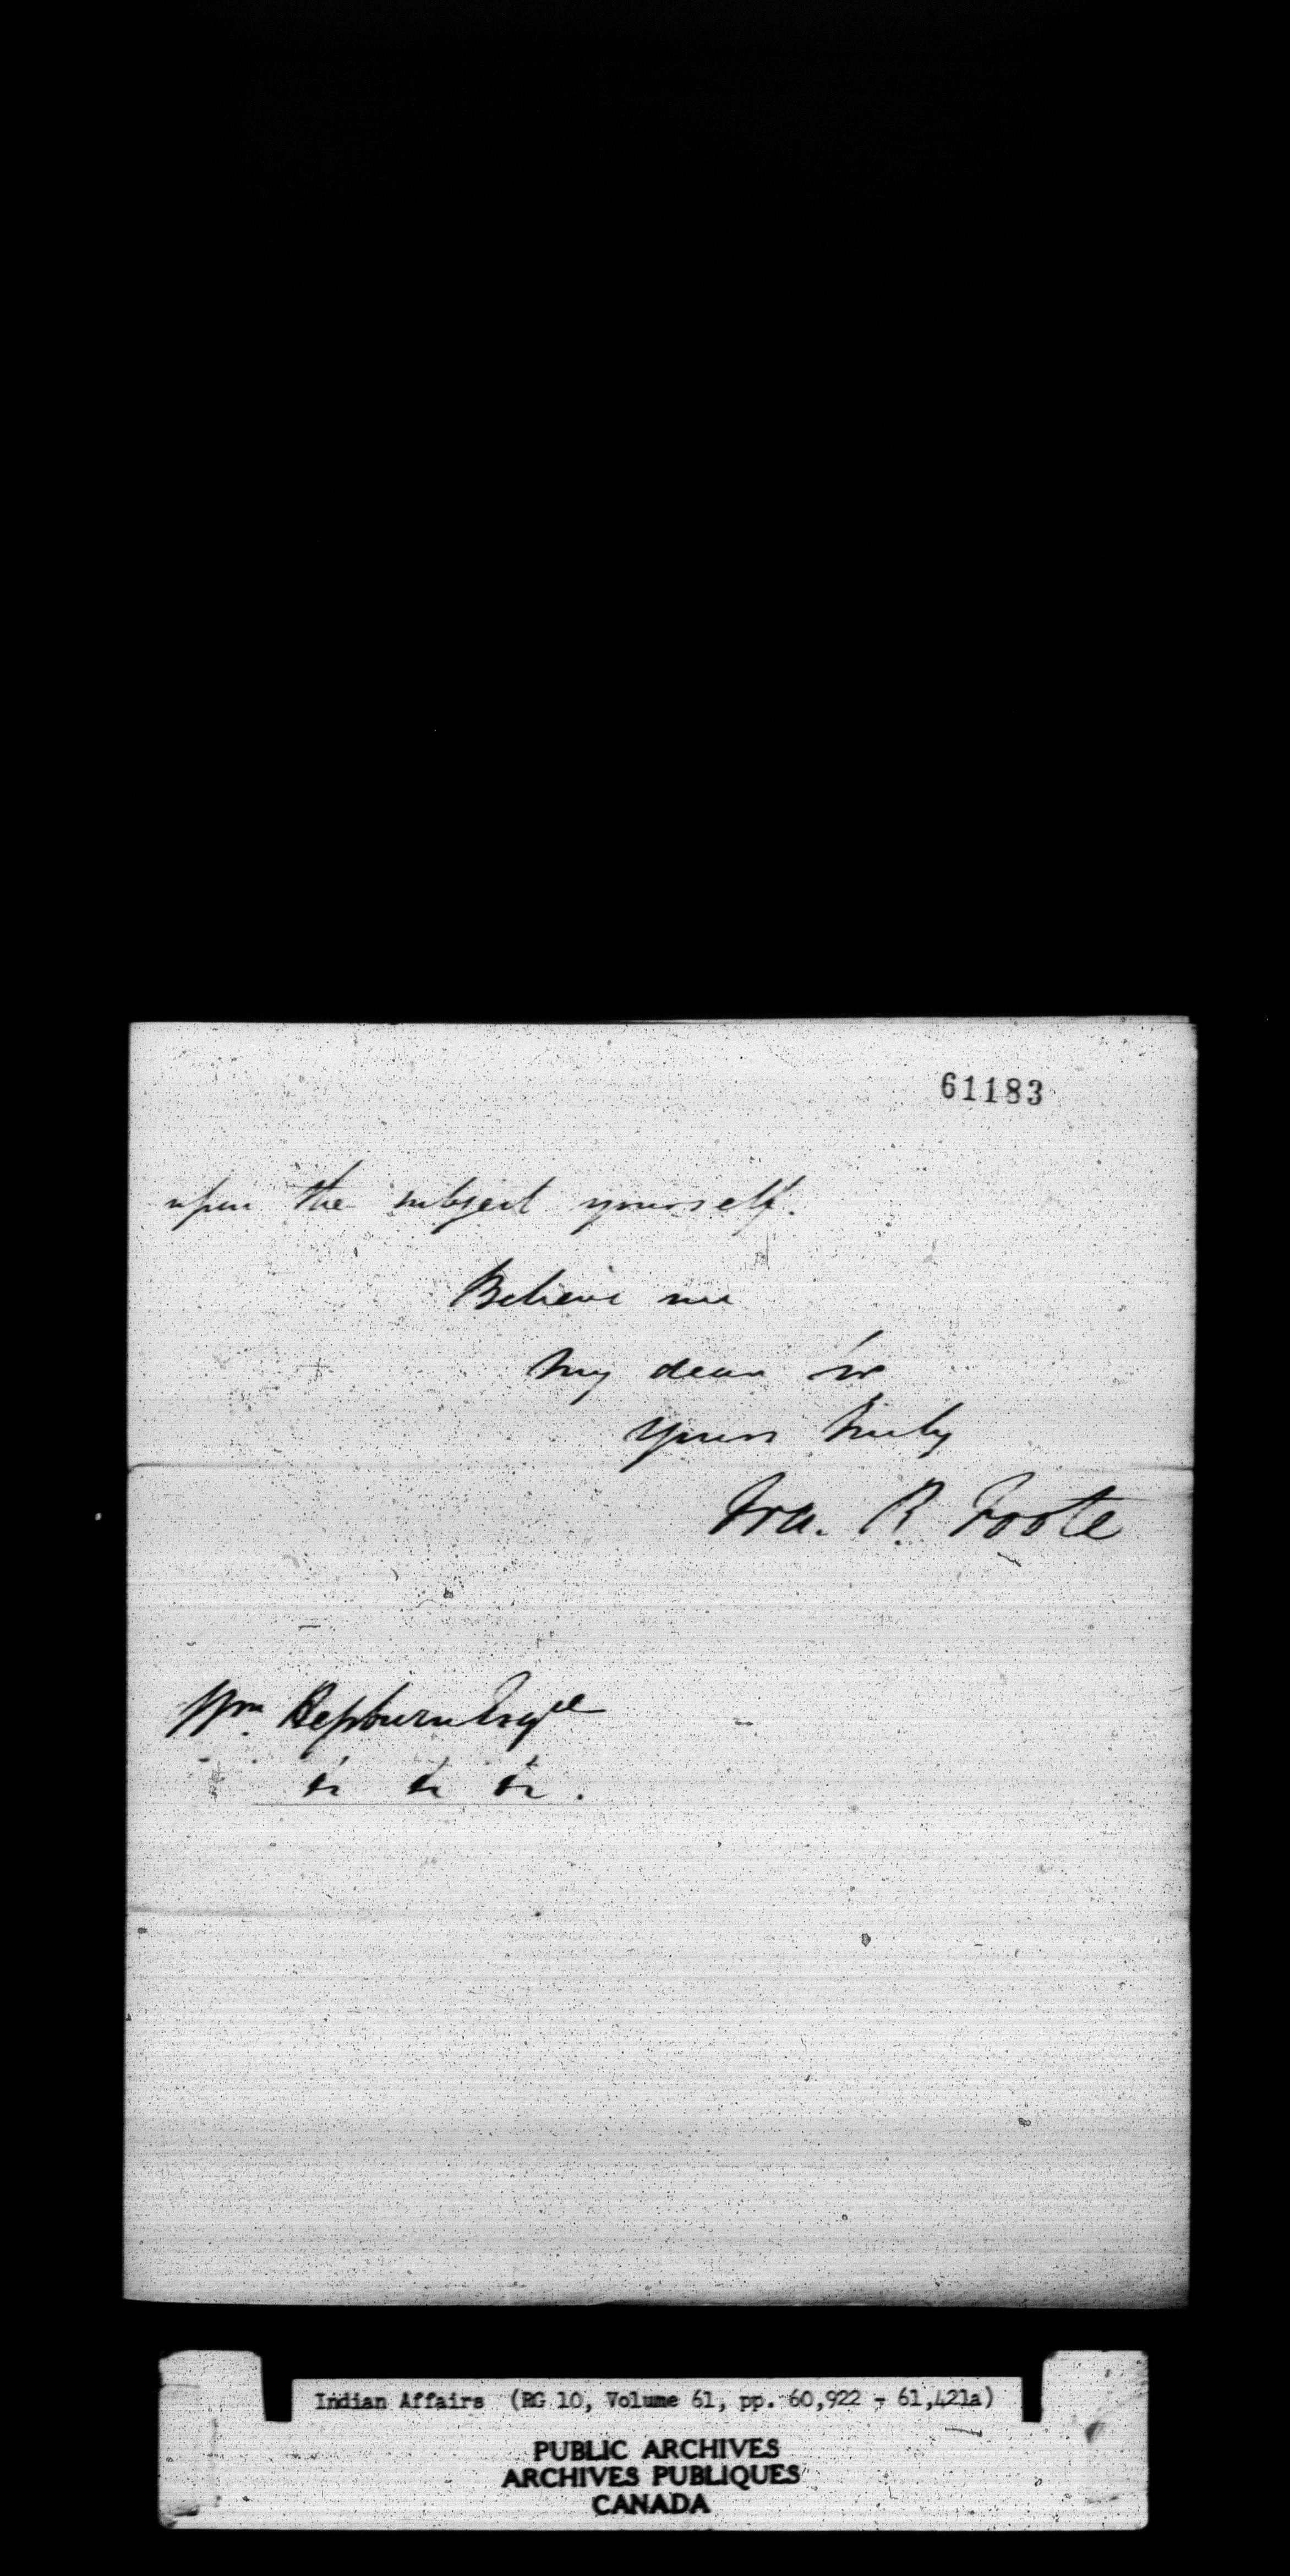 61183
upon the subject yourself.
Believe me
My dear Sir
Yours truly
Fra. R. Foote
Wm. Hepburn Esqre
&c &c &c.
Indian Affairs (RG 10, Volume 61, pp. 60,922 - 61,421a)
PUBLIC ARCHIVES
ARCHIVES PUBLIQUES
CANADA